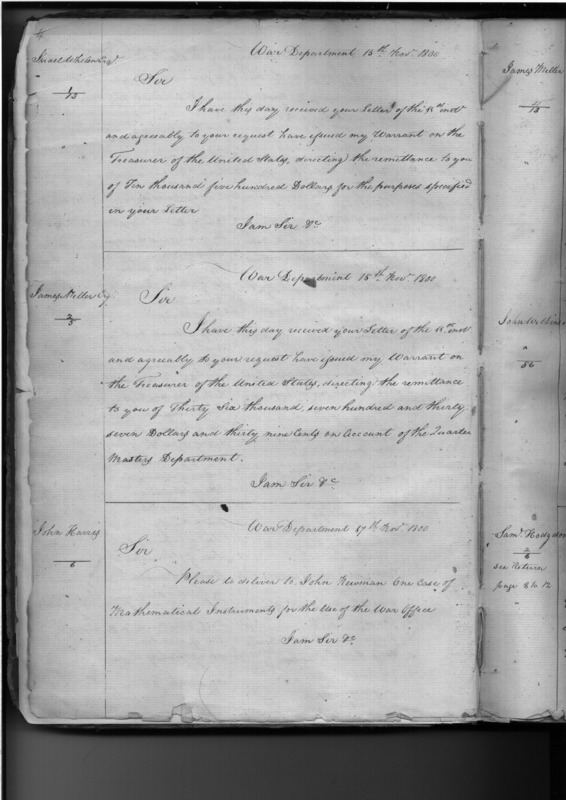 War Department 15th Novr. 1800
Israel Whelen Esqr.
1/13
Sir
I have this day received your Letter of the instt
and agreeably to your request have issued my Warrant on the
Treasurer of the United States, directing the remittance to you
of Ten thousand five hundred Dollars for the purposes specified
in your Letter
I am Sir &c
War Department 15th Novr. 1800
James Miller Esq
2/3
Sir
I have this day received your Letter of the instt
and agreeably to your request have issued my Warrant on
the Treasurer of the United States, directing the remittance
to you of Thirty Six thousand, seven hundred and thirty
seven Dollars and thirty nine Cents on Account of the Quarter
Masters Department.
I am Sir &c
War Department 17th Novr. 1800
John Harris
6
Sir
Please to deliver to John Newman One Case of
Mathematical Instruments for the Use of the War Office
I am Sir &c
James Miller
13
John
56
Saml. Hodgdon
2/6
see Return
page 8 to 12